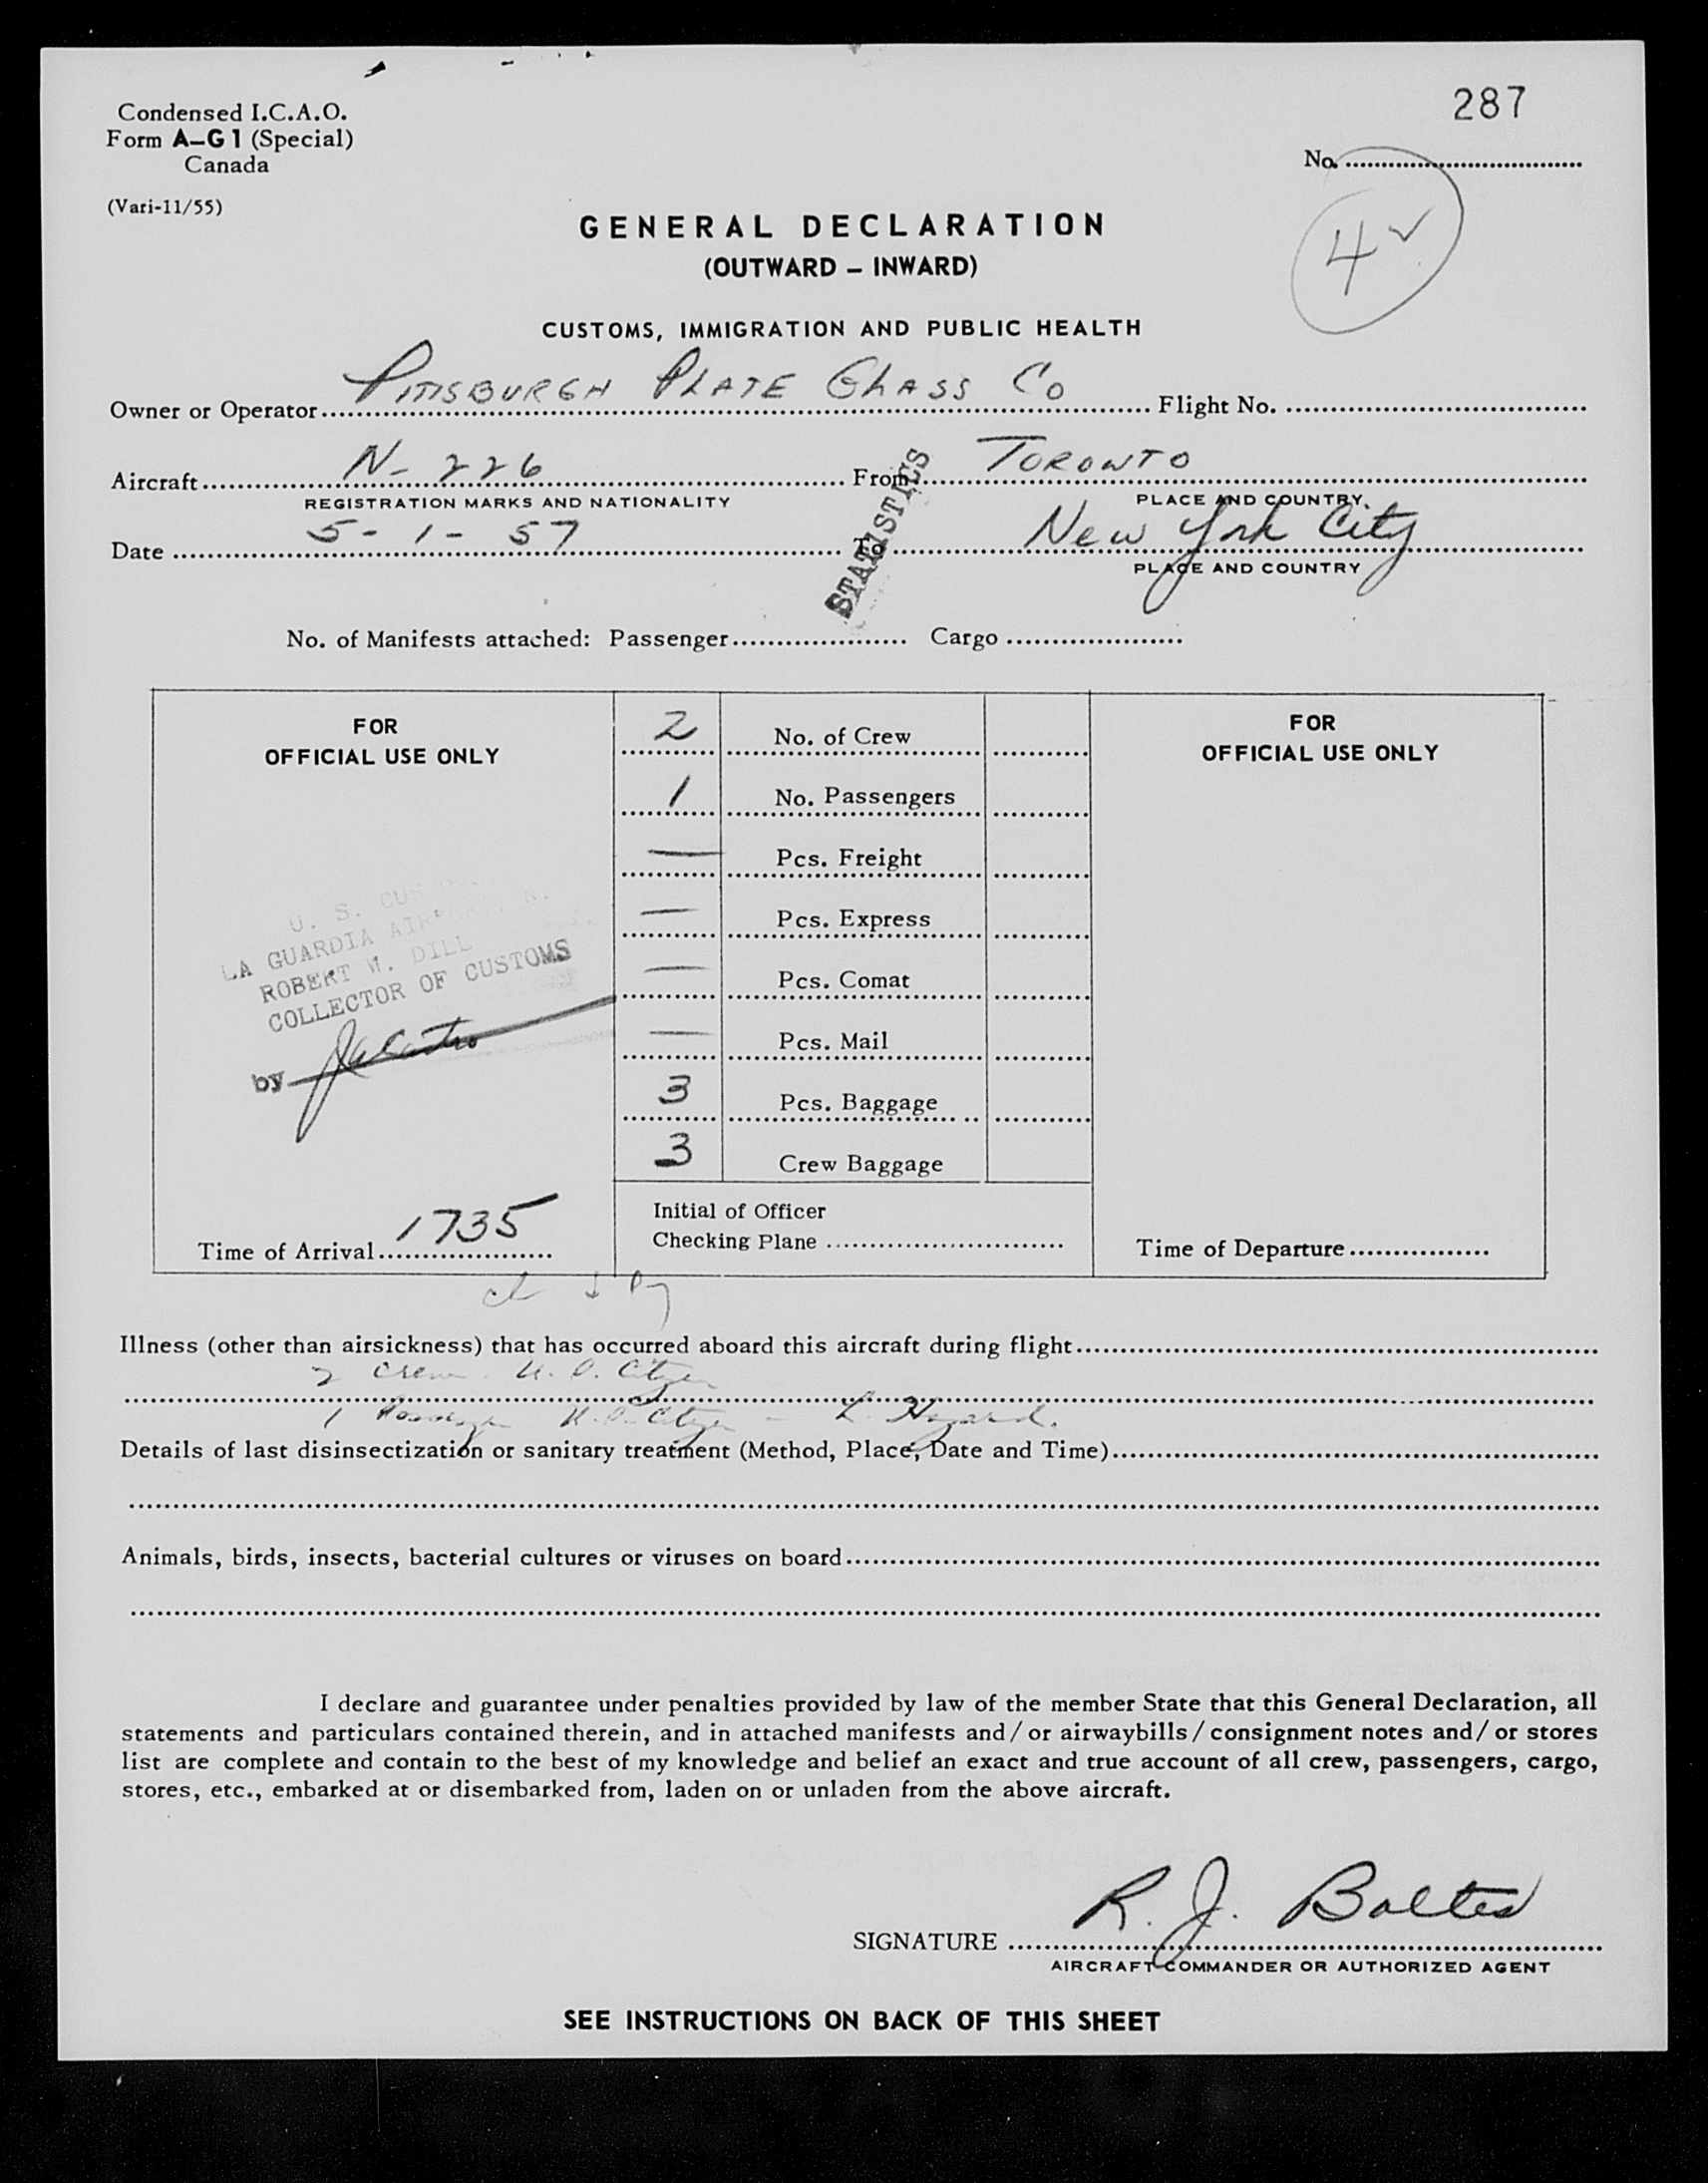 Condensed I.C.A.O.
Form A–G 1 (Special)
Canada
(Vari-11/55)
287
No. ........
4 ✓
GENERAL DECLARATION
(OUTWARD – INWARD)
CUSTOMS, IMMIGRATION AND PUBLIC HEALTH
Owner or Operator PITTSBURGH PLATE GLASS CO Flight No. ........
Aircraft N-226 From TORONTO
REGISTRATION MARKS AND NATIONALITY PLACE AND COUNTRY
Date 5-1-57 To New York City
PLACE AND COUNTRY
STATISTICS
No. of Manifests attached: Passenger ........ Cargo ........
FOR
OFFICIAL USE ONLY
U. S. CUS
LA GUARDIA AIRPORT, N.
ROBERT W. DILL
COLLECTOR OF CUSTOMS
by
Time of Arrival 1735
2 No. of Crew
1 No. Passengers
— Pcs. Freight
— Pcs. Express
— Pcs. Comat
— Pcs. Mail
3 Pcs. Baggage
3 Crew Baggage
Initial of Officer
Checking Plane ........
FOR
OFFICIAL USE ONLY
Time of Departure ........
Illness (other than airsickness) that has occurred aboard this aircraft during flight ........
2 Crew U.S. Citizen
1 Passenger U.S. Citizen – L. Hazard.
Details of last disinsectization or sanitary treatment (Method, Place, Date and Time) ........
Animals, birds, insects, bacterial cultures or viruses on board ........
I declare and guarantee under penalties provided by law of the member State that this General Declaration, all
statements and particulars contained therein, and in attached manifests and/or airwaybills/consignment notes and/or stores
list are complete and contain to the best of my knowledge and belief an exact and true account of all crew, passengers, cargo,
stores, etc., embarked at or disembarked from, laden on or unladen from the above aircraft.
SIGNATURE R. J. Bolted
AIRCRAFT COMMANDER OR AUTHORIZED AGENT
SEE INSTRUCTIONS ON BACK OF THIS SHEET